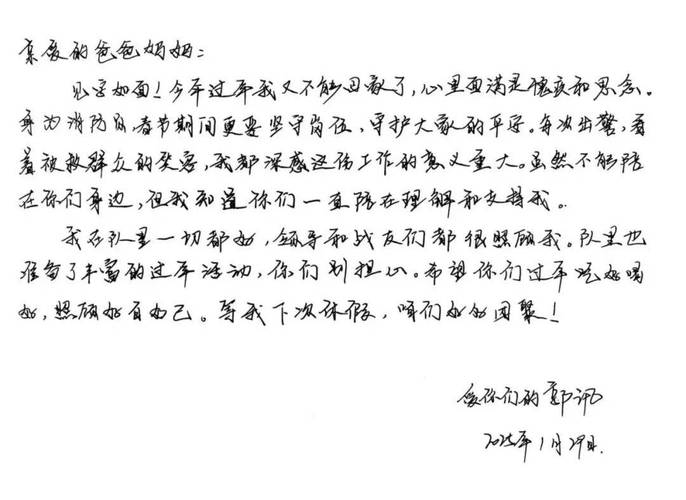 亲爱的爸爸妈妈：
见字如面！今年过年我又不能回家了，心里面满是愧疚和思念。
身为消防员，春节期间更要坚守岗位，守护大家的平安。每次出警，看
着被救群众的笑容，我都深感这份工作的意义重大。虽然不能陪
在你们身边，但我知道你们一直陪在理解和支持我。
我在队里一切都好，领导和战友们都很照顾我。队里也
准备了丰富的过年活动，你们别担心。希望你们过年吃好喝
好，照顾好自己。等我下次休假，咱们好好团聚！
爱你们的郭讯
2025年1月29日.